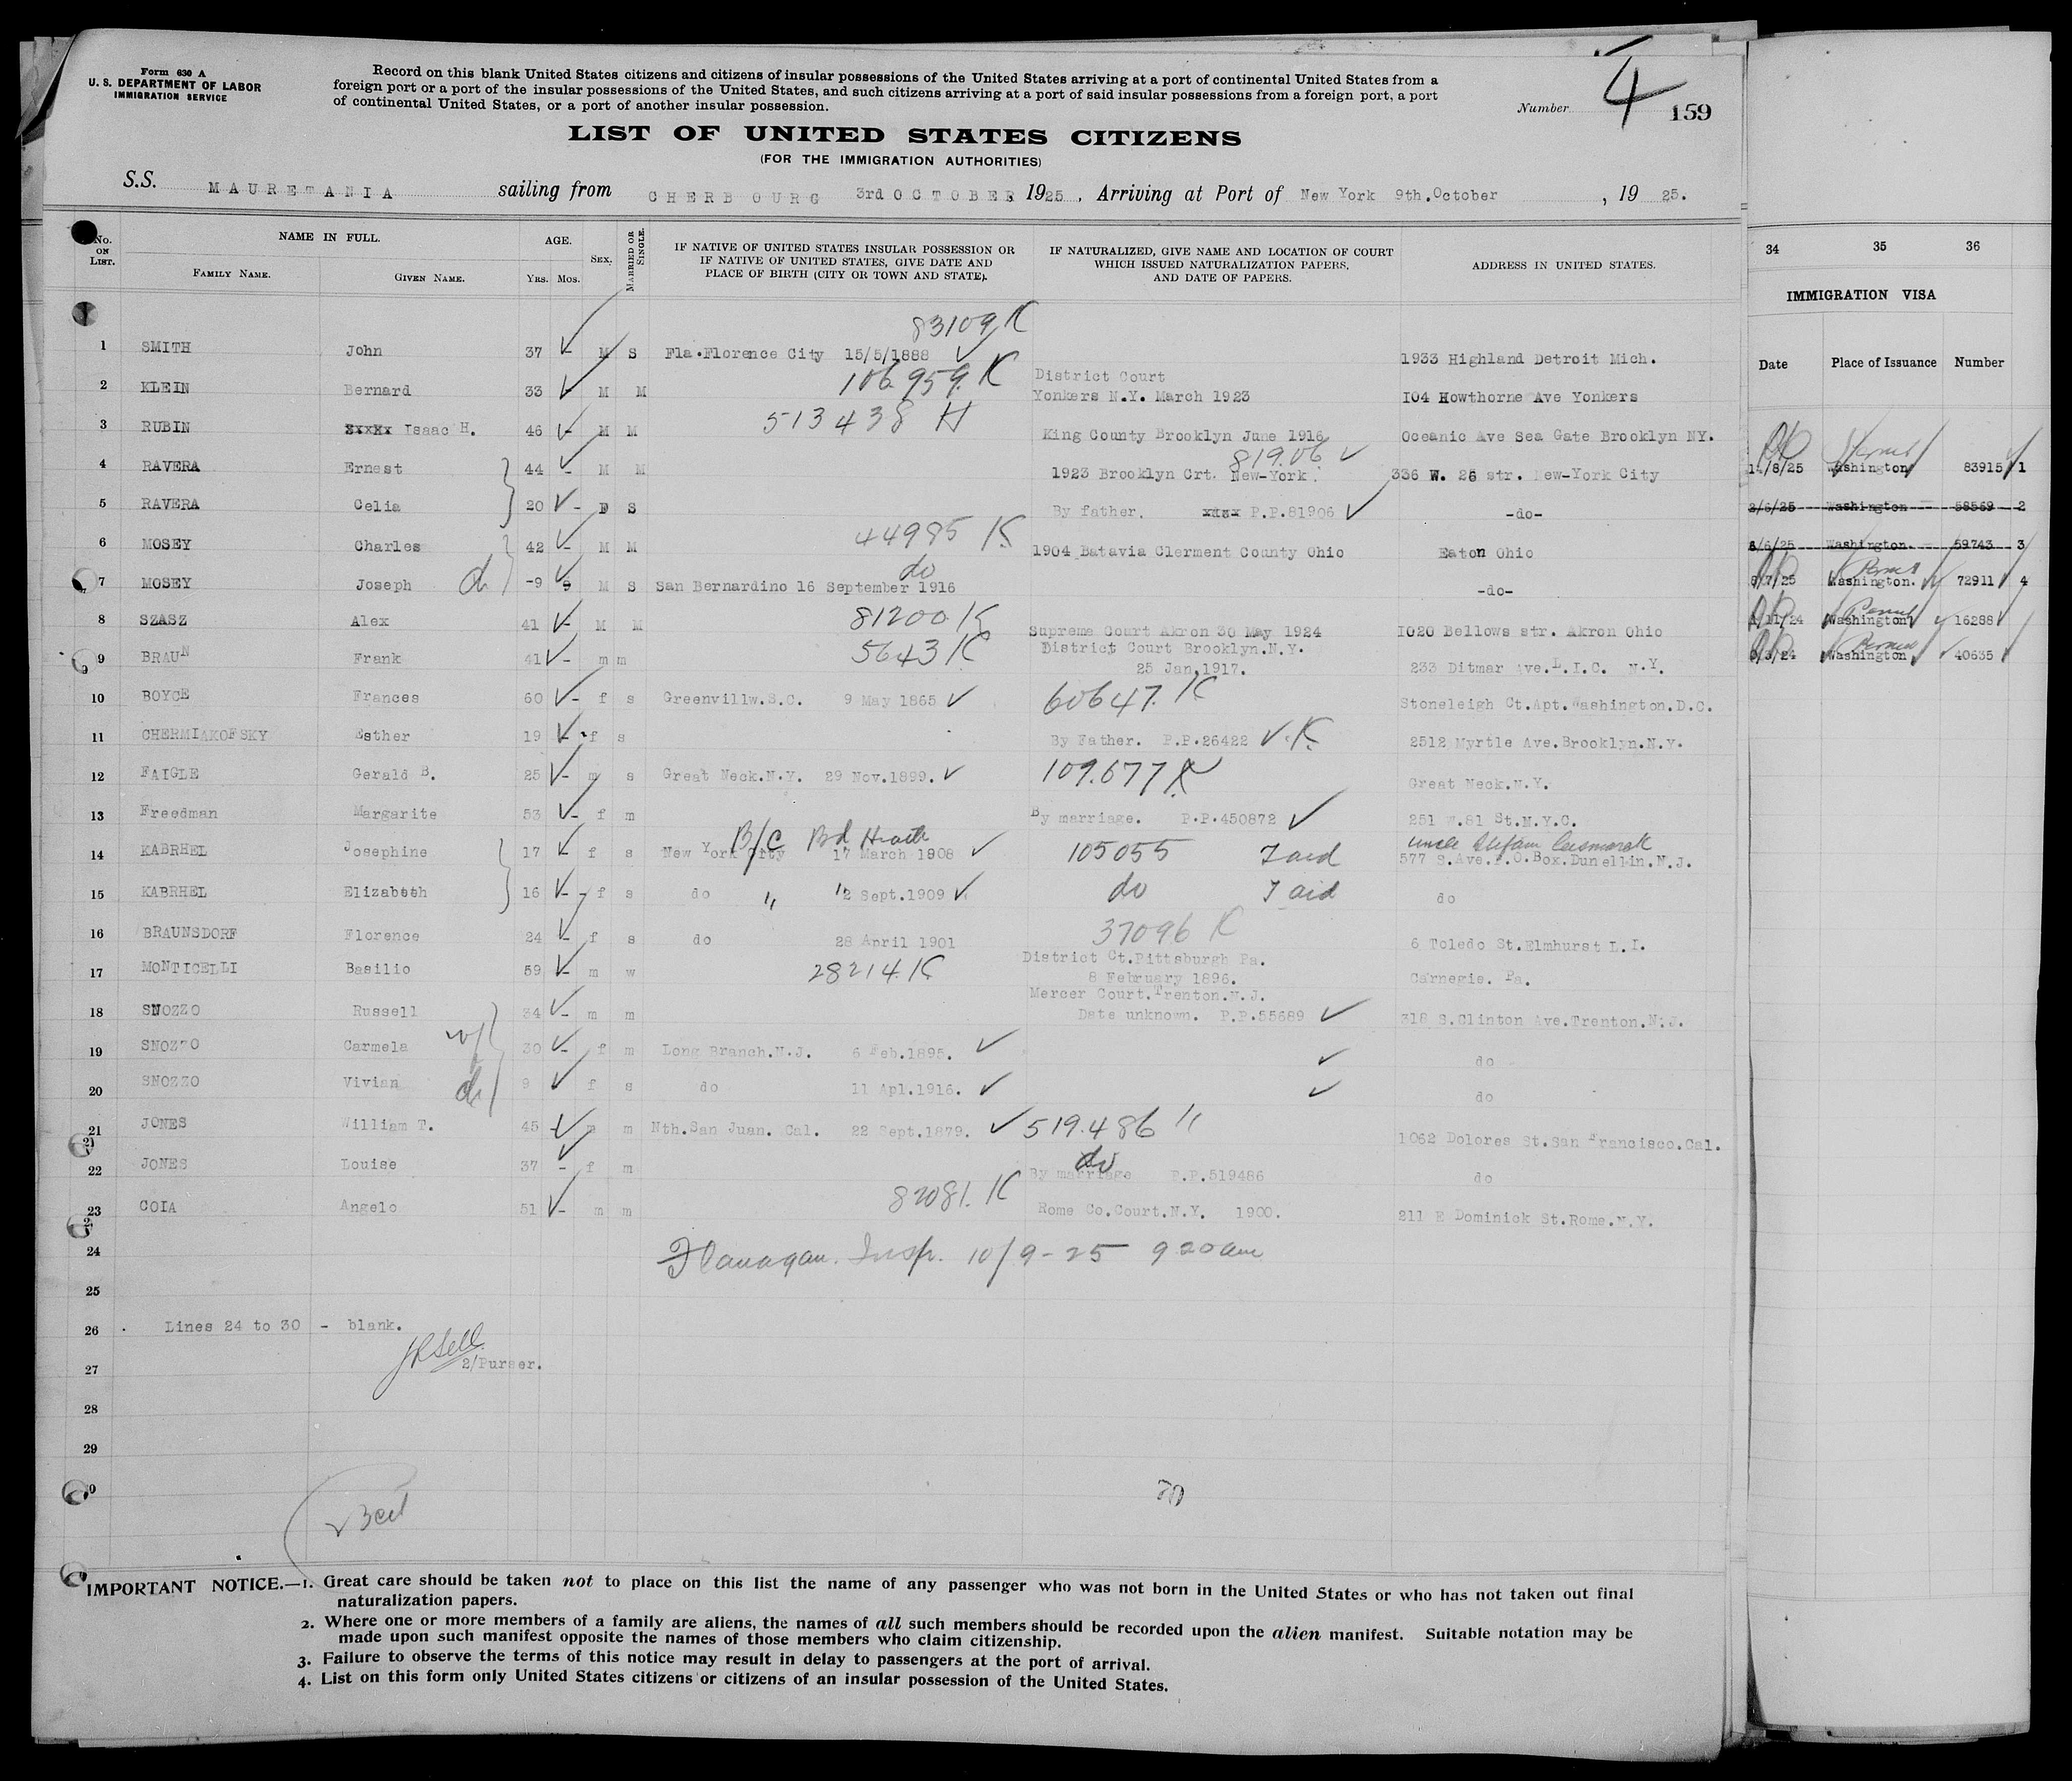 Form 630 A
U. S. DEPARTMENT OF LABOR
IMMIGRATION SERVICE
Record on this blank United States citizens and citizens of insular possessions of the United States arriving at a port of continental United States from a
foreign port or a port of the insular possessions of the United States, and such citizens arriving at a port of said insular possessions from a foreign port, a port
of continental United States, or a port of another insular possession.
Number 4 159
LIST OF UNITED STATES CITIZENS
(FOR THE IMMIGRATION AUTHORITIES)
S.S. MAURETANIA sailing from CHERBOURG 3rd OCTOBER, 1925, Arriving at Port of New York 9th.October, 1925.
No. ON LIST. NAME IN FULL. AGE. SEX. MARRIED OR SINGLE. IF NATIVE OF UNITED STATES INSULAR POSSESSION OR IF NATIVE OF UNITED STATES, GIVE DATE AND PLACE OF BIRTH (CITY OR TOWN AND STATE). IF NATURALIZED, GIVE NAME AND LOCATION OF COURT WHICH ISSUED NATURALIZATION PAPERS, AND DATE OF PAPERS. ADDRESS IN UNITED STATES.
FAMILY NAME. GIVEN NAME. YRS. MOS.
34 35 36
IMMIGRATION VISA
Date Place of Issuance Number
83109 K
1 SMITH John 37 - M S Fla.Florence City 15/5/1888 1933 Highland Detroit Mich.
106.959. K District Court
2 KLEIN Bernard 33 - M M Yonkers N.Y. March 1923 104 Howthorne Ave Yonkers
513438 H
3 RUBIN Isaac H. 46 - M M King County Brooklyn June 1916 Oceanic Ave Sea Gate Brooklyn NY.
819.06
4 RAVERA Ernest 44 - M M 1923 Brooklyn Crt. New-York. 336 W. 26 str. New-York City
5 RAVERA Celia 20 - F S By father. P.P.81906 -do-
44985 K
6 MOSEY Charles 42 - M M 1904 Batavia Clerment County Ohio Eaton Ohio
do
7 MOSEY Joseph -9 M S San Bernardino 16 September 1916 -do-
81200 K
8 SZASZ Alex 41 - M M Supreme Court Akron 30 May 1924 1020 Bellows str. Akron Ohio
5643 K District Court Brooklyn.N.Y.
9 BRAUN Frank 41 - m m 25 Jan,1917. 233 Ditmar Ave.L.I.C. N.Y.
10 BOYCE Frances 60 - f s Greenvillw.S.C. 9 May 1865 60647. K Stoneleigh Ct.Apt.Washington.D.C.
11 CHERMIAKOFSKY Esther 19 - f s By Father. P.P.26422 K. 2512 Myrtle Ave.Brooklyn.N.Y.
12 FAIGLE Gerald B. 25 - m s Great Neck.N.Y. 29 Nov.1899. 109.677 K Great Neck.N.Y.
13 Freedman Margarite 53 - f m By marriage. P.P.450872 251 W.81 St.N.Y.C.
B/C Bd Health uncle
14 KABRHEL Josephine 17 - f s New York City 17 March 1908 105055 577 S.Ave.P.O.Box.Dunellin.N.J.
15 KABRHEL Elizabeth 16 - f s do " 12 Sept.1909 do do
16 BRAUNSDORF Florence 24 - f s do 28 April 1901 37096 K 6 Toledo St.Elmhurst L.I.
District Ct.Pittsburgh Pa.
17 MONTICELLI Basilio 59 - m w 28214. K 8 February 1896. Carnegie. Pa.
Mercer Court.Trenton.N.J.
18 SNOZZO Russell 34 - m m Date unknown. P.P.55689 318 S.Clinton Ave.Trenton.N.J.
19 SNOZZO Carmela 30 - f m Long Branch.N.J. 6 Feb.1895. do
20 SNOZZO Vivian 9 f s do 11 Apl.1916. do
21 JONES William T. 45 - m m Nth.San Juan. Cal. 22 Sept.1879. 519.486 1062 Dolores St.San Francisco.Cal.
do
22 JONES Louise 37 - f m By marriage P.P.519486 do
82081. K
23 COIA Angelo 51 - m m Rome Co.Court.N.Y. 1900. 211 E Dominick St.Rome.N.Y.
24 Flanagan. Insp. 10/9-25 9 20 am
25
26 Lines 24 to 30 - blank.
2/Purser.
27
28
29
14/8/25 Washington 83915 1
2/6/25 Washington 58569 2
6/6/25 Washington. 59743 3
/7/25 Washington. 72911 4
/11/24 Washington 16288
/3/24 Washington 40635
IMPORTANT NOTICE.—1. Great care should be taken not to place on this list the name of any passenger who was not born in the United States or who has not taken out final
naturalization papers.
2. Where one or more members of a family are aliens, the names of all such members should be recorded upon the alien manifest. Suitable notation may be
made upon such manifest opposite the names of those members who claim citizenship.
3. Failure to observe the terms of this notice may result in delay to passengers at the port of arrival.
4. List on this form only United States citizens or citizens of an insular possession of the United States.